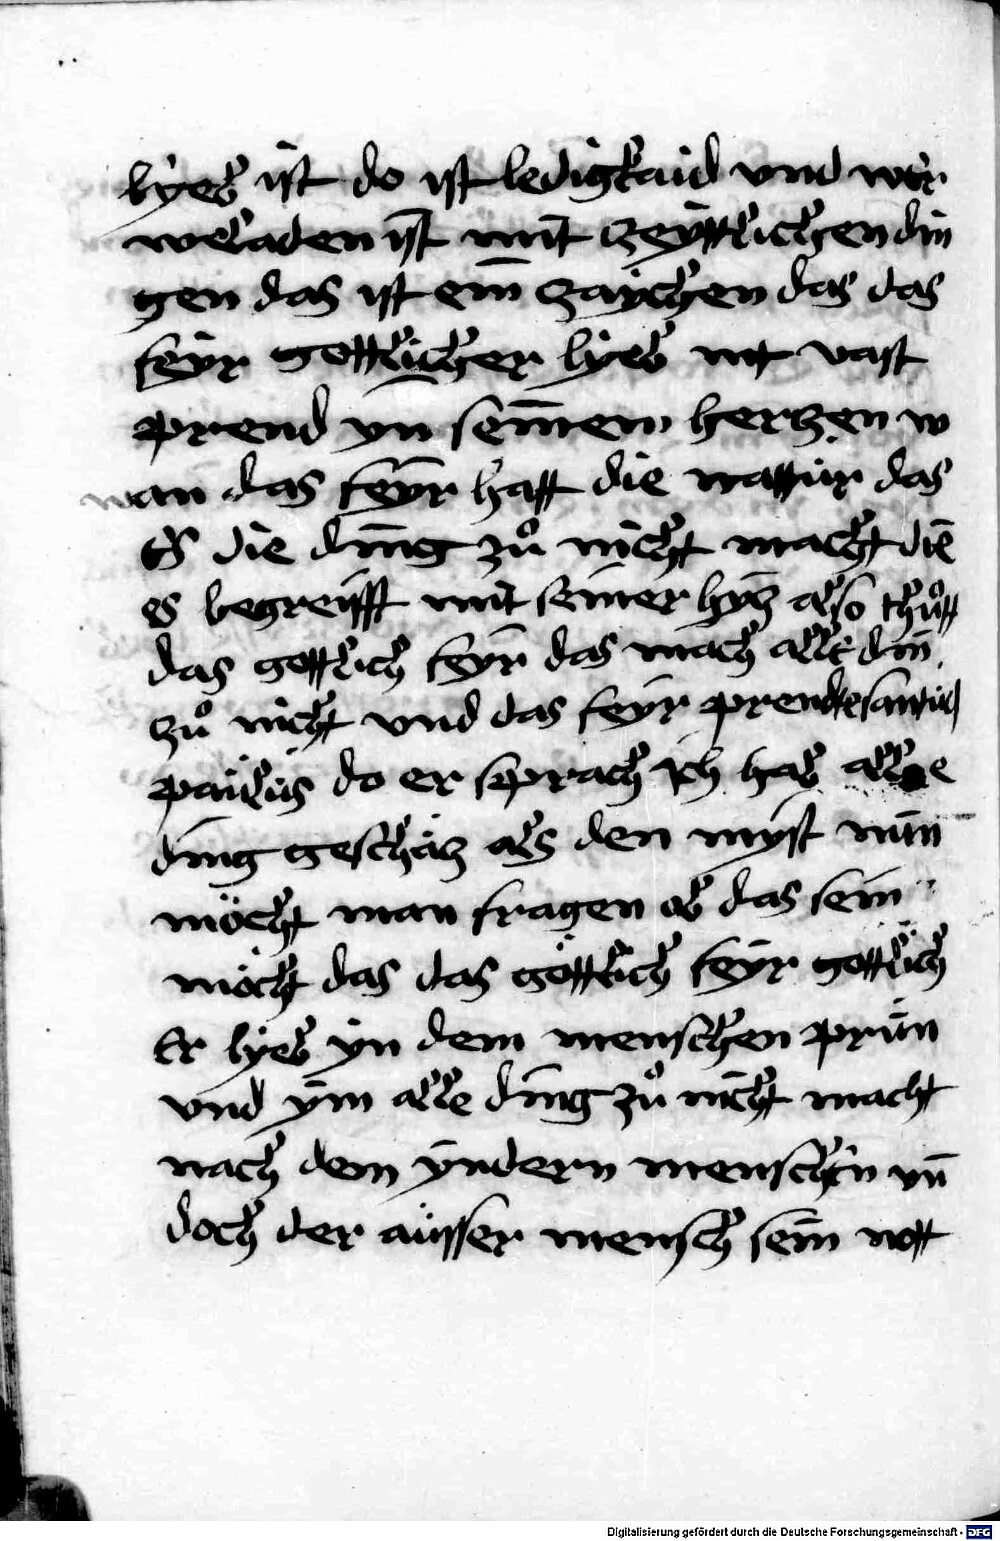 lyeb ist do ist ledigkaid vnd wer
weladen ist mit zeyttlichen din
gen das ist ein zaychen das das
feyr gottlicher lyeb nit vast
prend yn seinem herzen w
wan das feyr hatt die nattur das
es die ding zů nicht macht die
es begreifft mit seiner hycz also thůtt
das gottlich feyr das mach alle din
zů nicht vnd das feyr prendte santus
paulus do er sprach Ich hab alle
ding geschäcz als den myst nun
möcht man fragen ob das sein
möcht das das göttlich feyr gottlich
Er lyeb yn dem menschen prün
vnd ym alle ding zů nicht macht
nach dem yndern menschen vn̄
doch der äusser mensch sein nott
Digitalisierung gefördert durch die Deutsche Forschungsgemeinschaft - DFG